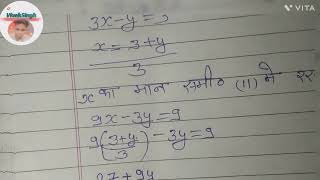 VivekSingh
VITA
3x-y=3
x = 3+y
3
x का मान समी० (11) में रख
9x-3y=9
9(3+y/3) - 3y=9
27+9y